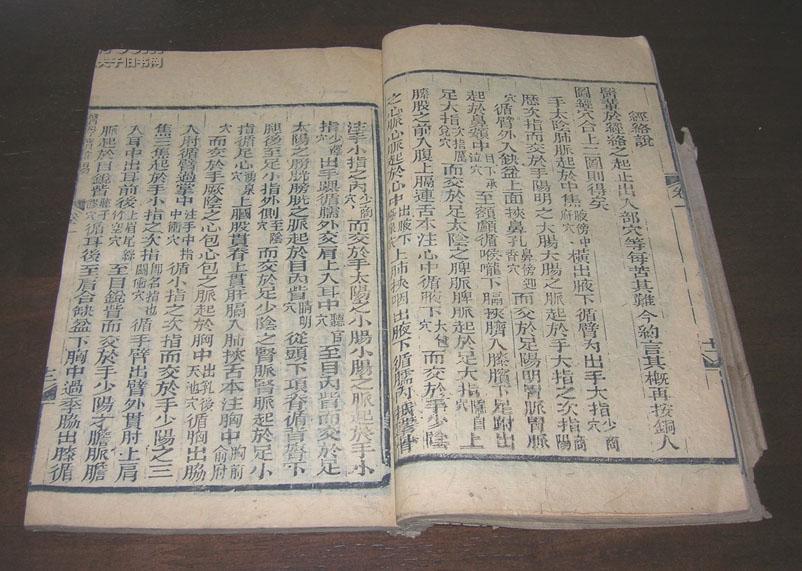 經絡說
醫輩於經絡之起止出入部穴等每苦其難今約言其概再按銅人
圖經穴合上二圖則得矣
手太陰肺脈起於中焦腋傍中府穴橫出腋下循臂內出手大指少商穴
歷次指而交於手陽明之大腸大腸之脈起於手大指之次指商陽
穴循臂外入缺盆上面挾鼻孔鼻傍迎香穴而交於足陽明胃脈胃脈
起於鼻頞中目下承泣穴至額顱循喉嚨下膈挾臍入膝臏下足跗出
足大指次指厲兌穴而交於足太陰之脾脈脾脈起於足大指隱白穴上
膝股之前入腹上膈連舌本注心中循腋下大包穴而交於手少陰
之心脈心脈起於心中出腋下極泉穴上肺挾咽出腋下循臑內
注手小指之內少衝穴而交於手太陽之小腸小腸之脈起於手小
指少澤穴出手踝循臑外交肩上入耳中聽宮穴至目內眥而交於足
太陽之膀胱膀胱之脈起於目內眥睛明穴從頭下項脊循背臀下
腿後至足小指外側至陰穴而交於足少陰之腎脈腎脈起於足小
指循足心湧泉穴上膕股貫脊上貫肝膈入肺挾舌本注胸中胸前俞府穴
而交於手厥陰之心包心包之脈起於胸中出乳後天池穴循胸出脇
入肘循臂過掌中注手中指中衝穴循小指之次指而交於手少陽之三
焦三焦起於手小指之次指即名指也關衝穴循手臂出臂外貫肘上肩
入耳中出耳前後上眉尾絲竹空穴至目銳眥而交於手少陽才膽脈膽
脈起於目銳眥瞳子髎穴循耳後至肩合缺盆下胸中過季脇出膝循
天子旧书网